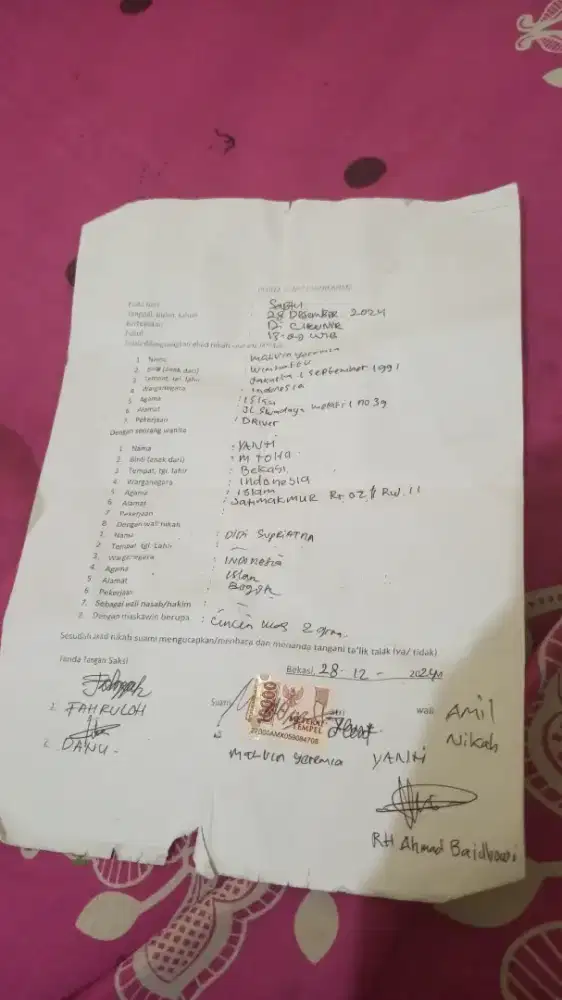 Sabtu
28 Desember 2024
Di
13.00 WIB
1. Nama : Yaremia
2. Binti (anak dari)
3. Tempat, tgl. lahir : Jakarta 1 September 1991
4. Warganegara : Indonesia
5. Agama : Islam
6. Alamat : JL. Swadaya no 39
7. Pekerjaan : DRIVER
Dengan seorang wanita
1. Nama : YANTI
2. Binti (anak dari) : M TOHA
3. Tempat, tgl. lahir : Bekasi,
4. Warganegara : Indonesia
5. Agama : Islam
6. Alamat : Jatimakmur Rt. 02 / Rw. 11
7. Pekerjaan :
8. Dengan wali nikah
1. Nama : DIDI SUPRIATNA
2. Tempat, tgl. Lahir : —
3. Warganegara : INDONESIA
4. Agama : Islam
5. Alamat : Bogor
6. Pekerjaan :
7. Sebagai wali nasab/hakim : —
8. Dengan maskawin berupa : Cincin Mas 2 gram.
Sesudah akad nikah suami mengucapkan/membaca dan menanda tangani ta'lik talak (ya/ tidak)
Bekasi, 28 - 12 - 2024
Tanda Tangan Saksi
Suami
wali Amil
Nikah
1. FAHRULOH
2. DANU -
10000
METERAI
TEMPEL
Yaremia
YANTI
RH Ahmad Baidhowi